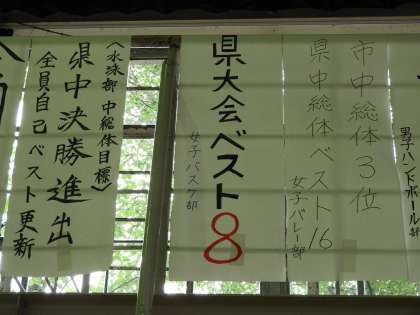 男子ハンドボール部
市中総体3位
県中総体ベスト16
女子バレー部
県大会ベスト8
女子バスケ部
〈水泳部 中総体目標〉
県中決勝進出
全員自己ベスト更新